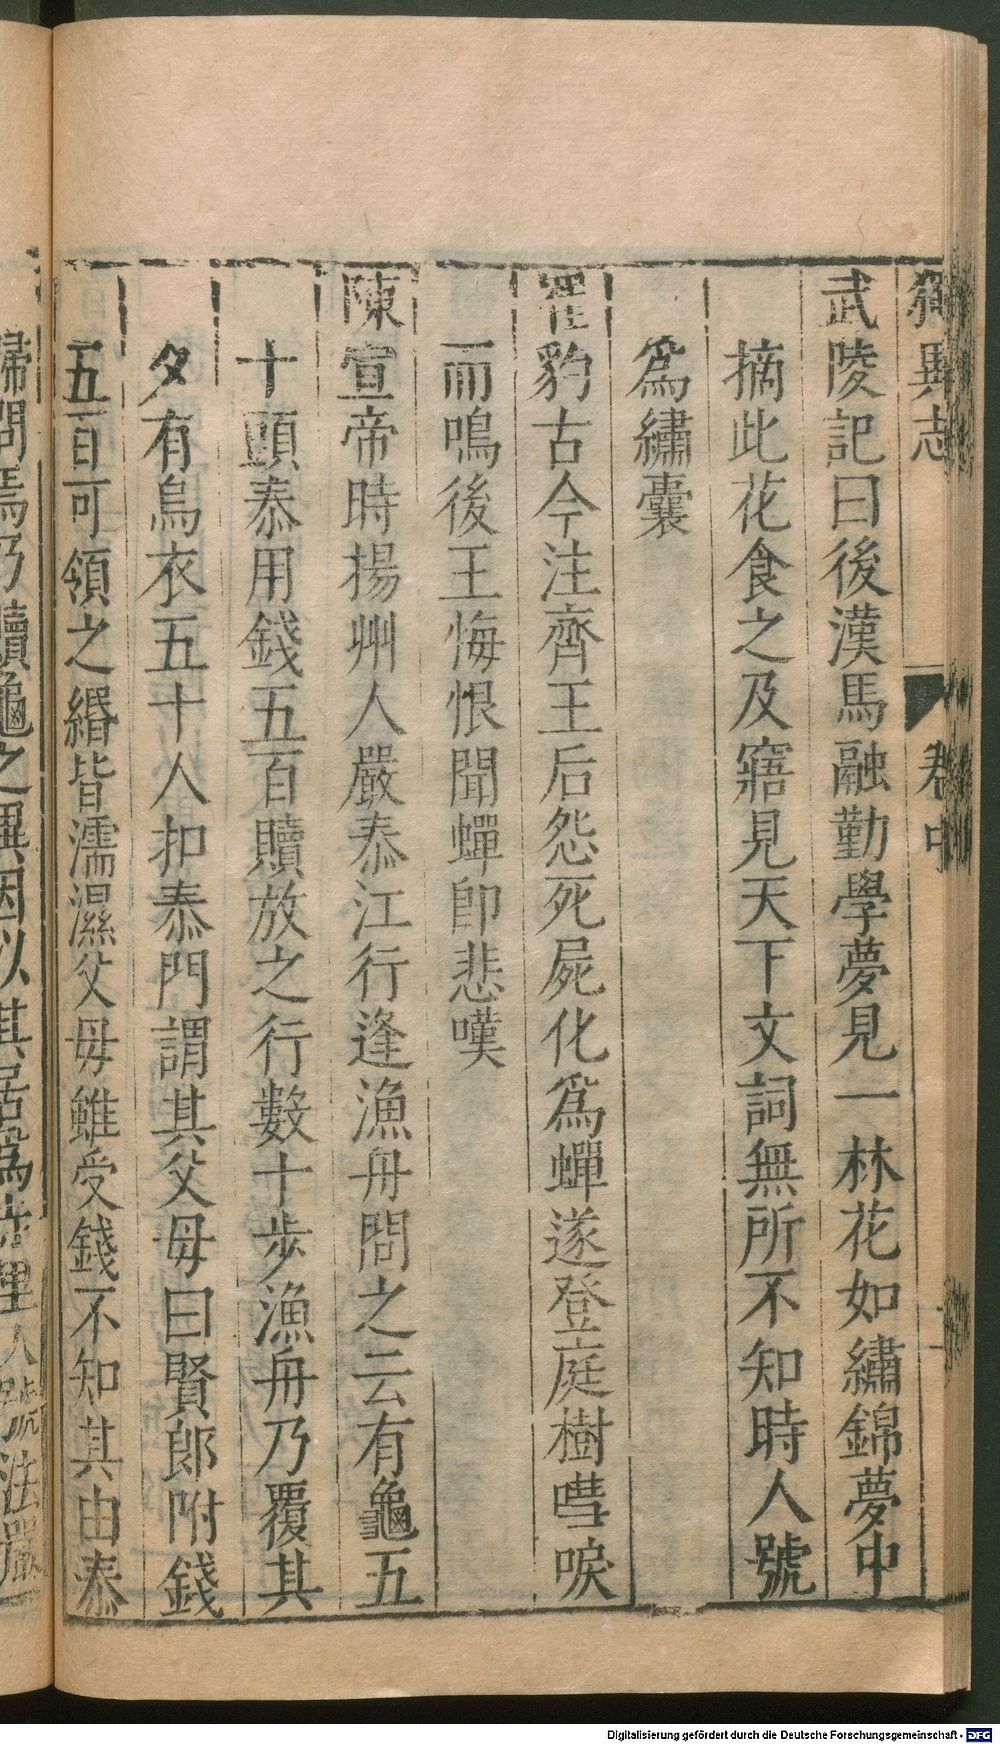 獨異志 卷中
武陵記曰後漢馬融勤學夢見一林花如繡錦夢中
摘此花食之及寤見天下文詞無所不知時人號
爲繡囊
崔豹古今注齊王后怨死屍化爲蟬遂登庭樹嘒唳
而鳴後王悔恨聞蟬卽悲嘆
陳宣帝時揚州人嚴泰江行逢漁舟問之云有龜五
十頭泰用錢五百贖放之行數十步漁舟乃覆其
夕有烏衣五十人扣泰門謂其父母曰賢郎附錢
五百可領之緡皆濡濕父母雖受錢不知其由泰
歸問焉乃贖龜之異因以其居爲寺里人號法嚴
Digitalisierung gefördert durch die Deutsche Forschungsgemeinschaft - DFG